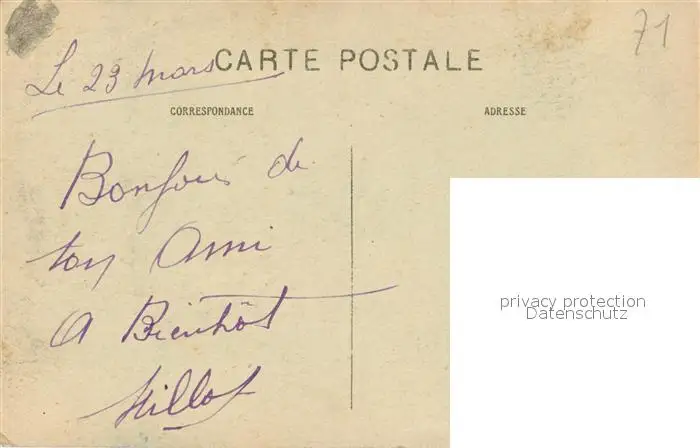 71
Le 23 mars
CARTE POSTALE
CORRESPONDANCE
ADRESSE
Bonjour de
ton Ami
A Bientôt
privacy protection
Datenschutz